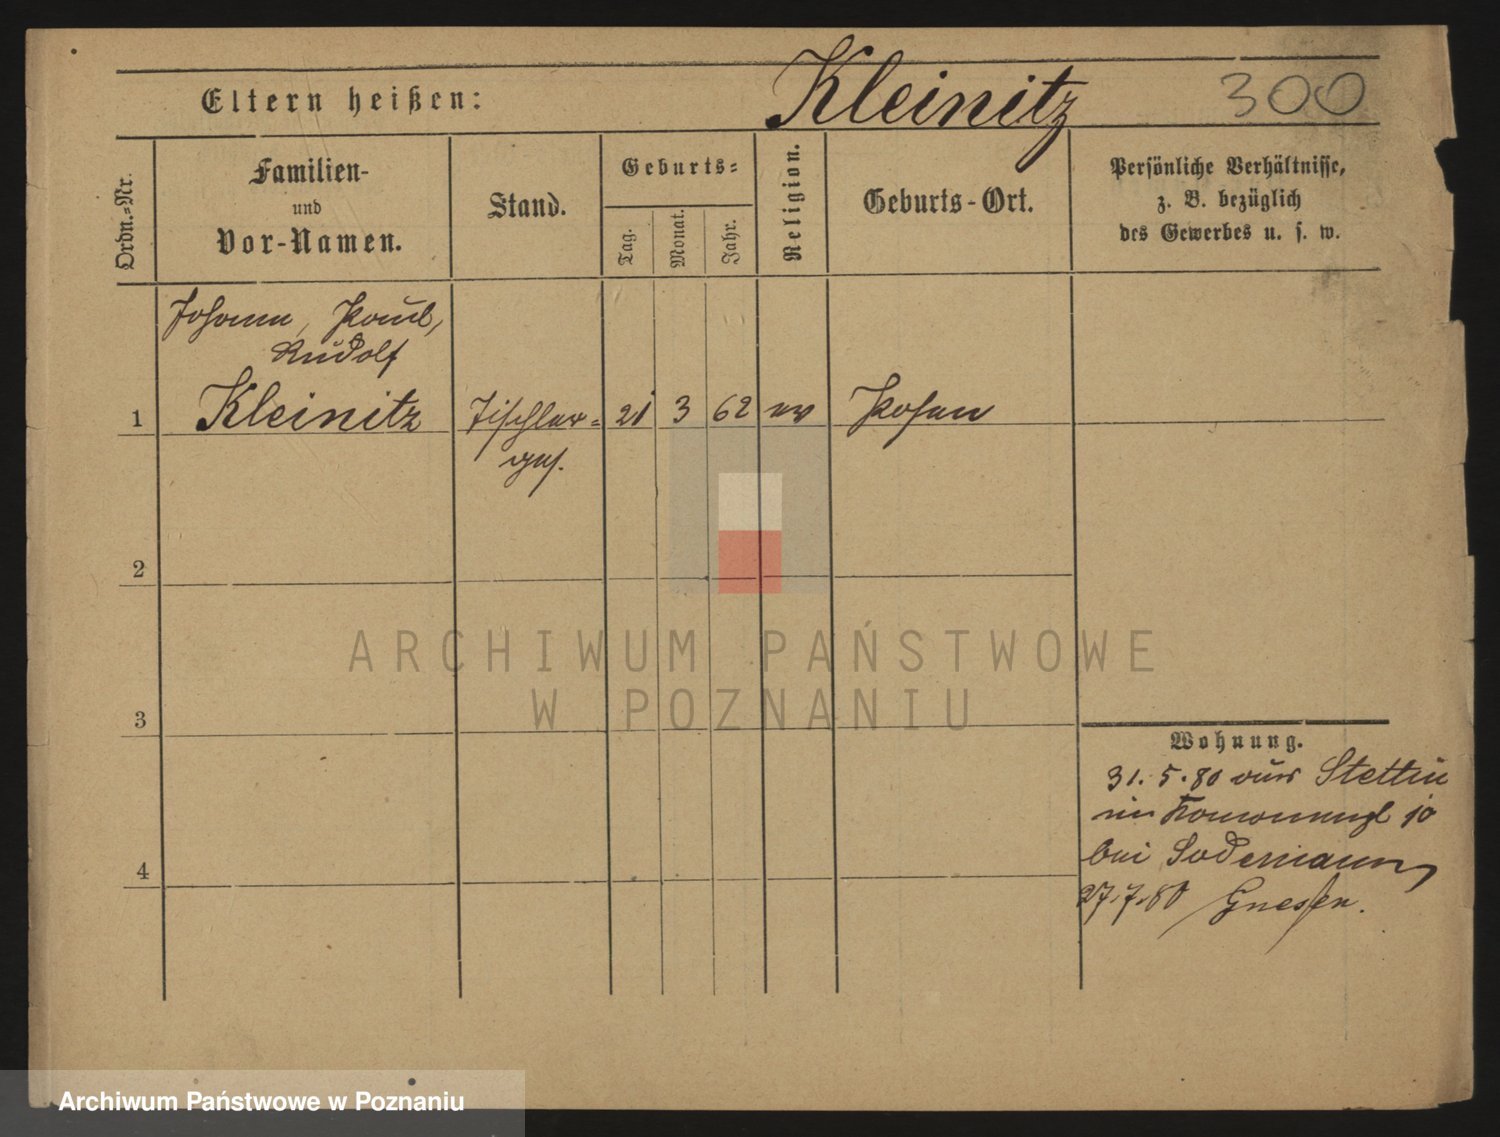 Eltern heißen: Kleinitz 300
Ordn.-Nr.
Familien-
und
Vor-Namen.
Stand.
Geburts-
Tag.
Monat.
Jahr.
Religion.
Geburts-Ort.
Persönliche Verhältnisse,
z. B. bezüglich
des Gewerbes u. s. w.
Johann, Paul,
Rudolf
1 Kleinitz Tischler= 21 3 62 ev Posen
ges.
2
3
4
Wohnung.
31.5.80 aus Stettin
10
bei Sodemann
27.7.80 Gnesen.
ARCHIWUM PAŃSTWOWE
W POZNANIU
Archiwum Państwowe w Poznaniu